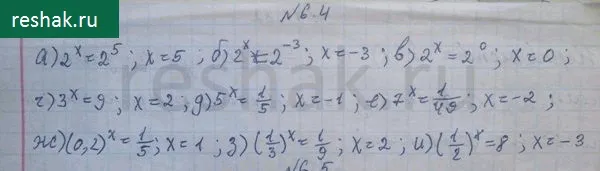 reshak.ru
№6.4
а) 2^x = 2^5 ; x = 5 ; б) 2^x = 2^-3 ; x = -3 ; в) 2^x = 2^0 ; x = 0 ;
г) 3^x = 9 ; x = 2 ; д) 5^x = 1/5 ; x = -1 ; е) 7^x = 1/49 ; x = -2 ;
ж) (0,2)^x = 1/5 ; x = 1 ; з) (1/3)^x = 1/9 ; x = 2 ; и) (1/2)^x = 8 ; x = -3
№6.5